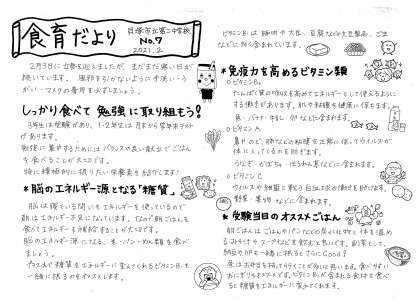 食育だより
貝塚市立第二中学校
No.7
2021.2
2月3日に立春を迎えましたが、まだまだ寒い日が
続いています。風邪をひかないように手洗い・う
がい・マスクの着用をお願いしましょう。
しっかり食べて勉強に取り組もう!
3年生は受験があり、1・2年生は月末から学年末テスト
があります。
勉強に集中するためにはバランスの良い献立でごはん
を食べることが大切です。
特に積極的に摂りたい栄養素を紹介します!
*脳のエネルギー源となる"糖質"
脳は寝ている間にもエネルギーを使っているので
朝はエネルギー不足になっています。なので朝ごはんを
食べてエネルギーを補給することが大切です。
脳のエネルギー源になる、米・パン・めん類を食べ
ましょう。
プラスαで糖質をエネルギーに変えてくれるビタミンB₁も
一緒に摂るのもオススメします。
ビタミンB₁は豚肉や大豆、豆腐などの大豆製品、ごま
などに多く含まれています。
*免疫力を高めるビタミン類
○ビタミンB₆
たんぱく質の吸収を高めてエネルギーとして使えるように
する働きがあります。肌や粘膜を健康に保ちます。
魚・バナナ・牛レバーなどに含まれます。
○ビタミンA
鼻やのど、肺などの粘膜を正常に保ってウイルスが
体に入ってくるのを防ぎます。
うなぎ・かぼちゃ・ほうれん草などに含まれます。
○ビタミンC
ウイルスや細菌と戦う白血球の働きを助けます。
野菜・果物などに含まれます。
*受験当日のオススメごはん
朝ごはんはごはんやパンなどの炭水化物と体を温め
るみそ汁やスープなどを飲むと良いです。副菜として、
納豆や卵を一緒に摂るとさらにGood!